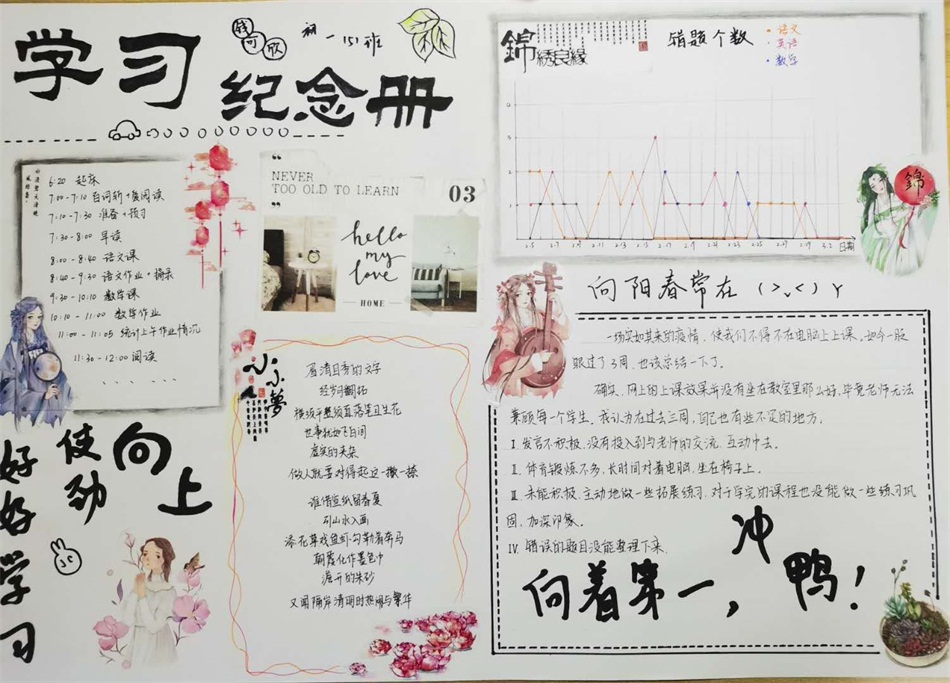 学习
纪念册
初一 151班
6:20 起床
7:00-7:10 百词斩+晨阅读
7:10-7:30 准备+预习
7:30-8:00 早读
8:00-8:40 语文课
8:40-9:30 语文作业+摘录
9:30-10:10 数学课
10:10-11:00 数学作业
11:00-11:05 统计上午作业情况
11:30-12:00 阅读
NEVER
TOO OLD TO LEARN
03
hello
my
love
HOME
好好学习
使劲
向上
小小夢
眉清目秀的文字
经岁月翻拓
横竖平整频直落笔且生花
世事犹如飞白间
虚实的夹杂
做人就要对得起这一撇一捺
谁借宣纸留春夏
引山水入画
添花草残鱼虾勾勒着奔马
朝霞化作墨色中
漉开的朱砂
又闻隔岸清明时熙攘与繁华
錦
绣良緣
错题个数
语文
英语
数学
日期
錦
向阳春常在 (>﹏<) Y
一场突如其来的疫情,使我们不得不在电脑上上课。如今一眨
眼过了3周,也该总结一下了。
确实,网上的上课效果并没有坐在教室里那么好,毕竟老师无法
兼顾每一个学生。我认为在过去三周,自己也有些不足的地方。
I. 发言不积极,没有投入到与老师的交流、互动中去。
II. 体育锻炼不多,长时间对着电脑,坐在椅子上。
III. 未能积极、主动地做一些拓展练习,对于学完的课程也没能做一些练习巩
固,加深印象。
IV. 错误的题目没能整理下来。
向着第一,冲鸭!